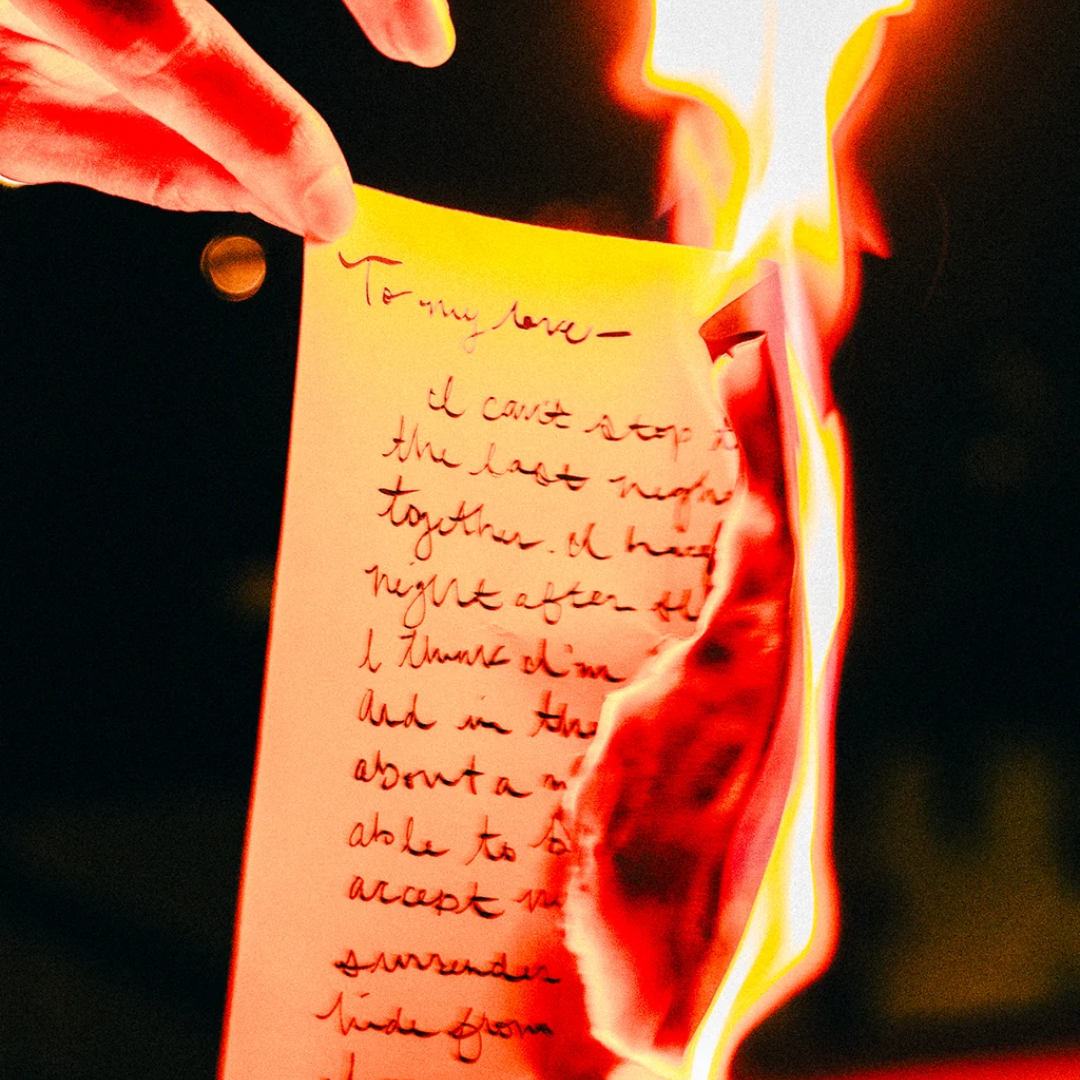 To my love—
I can't stop t
the last nigh
together. I
night after
I think I'm
And in the
about a m
able to
accept
surrender
hide from